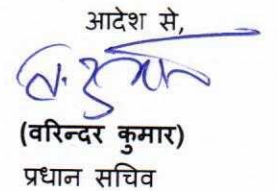 आदेश से,
(वरिन्दर कुमार)
प्रधान सचिव